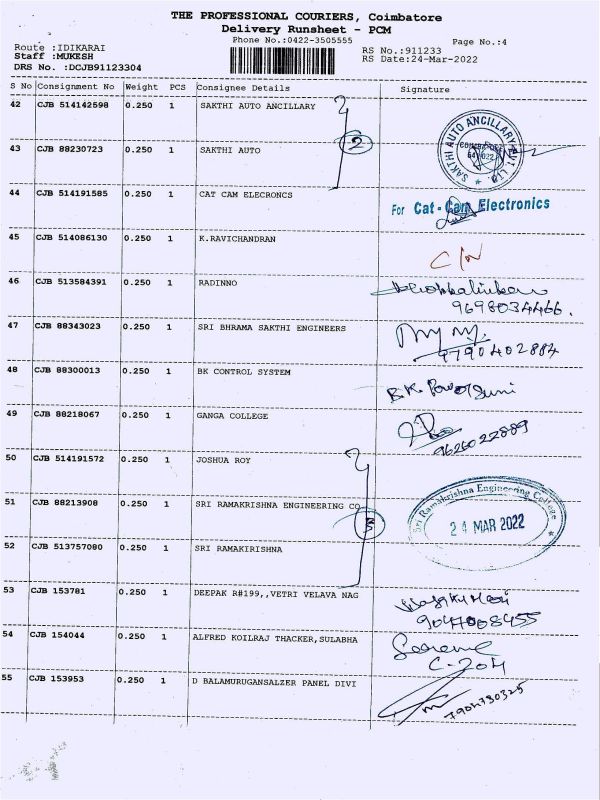 THE PROFESSIONAL COURIERS, Coimbatore
Delivery Runsheet - PCM
Phone No.:0422-3505555
Page No.:4
Route :IDIKARAI
RS No.:911233
Staff :MUKESH
RS Date:24-Mar-2022
DRS No. :DCJB91123304
S No Consignment No Weight PCS Consignee Details Signature
42 CJB 514142598 0.250 1 SAKTHI AUTO ANCILLARY
SAKTHI AUTO ANCILLARY PVT. LTD.
2
43 CJB 88230723 0.250 1 SAKTHI AUTO
44 CJB 514191585 0.250 1 CAT CAM ELECRONCS
For Cat - Cam Electronics
45 CJB 514086130 0.250 1 K.RAVICHANDRAN
C/N
46 CJB 513584391 0.250 1 RADINNO
9698034466.
47 CJB 88343023 0.250 1 SRI BHRAMA SAKTHI ENGINEERS
9790402884
48 CJB 88300013 0.250 1 BK CONTROL SYSTEM
49 CJB 88218067 0.250 1 GANGA COLLEGE
9626022889
50 CJB 514191572 0.250 1 JOSHUA ROY
51 CJB 88213908 0.250 1 SRI RAMAKRISHNA ENGINEERING CO
Sri Ramakrishna Engineering College
24 MAR 2022
52 CJB 513757080 0.250 1 SRI RAMAKIRISHNA
53 CJB 153781 0.250 1 DEEPAK R#199,,VETRI VELAVA NAG
9047008455
54 CJB 154044 0.250 1 ALFRED KOILRAJ THACKER,SULABHA
C-204
55 CJB 153953 0.250 1 D BALAMURUGANSALZER PANEL DIVI
7904730325